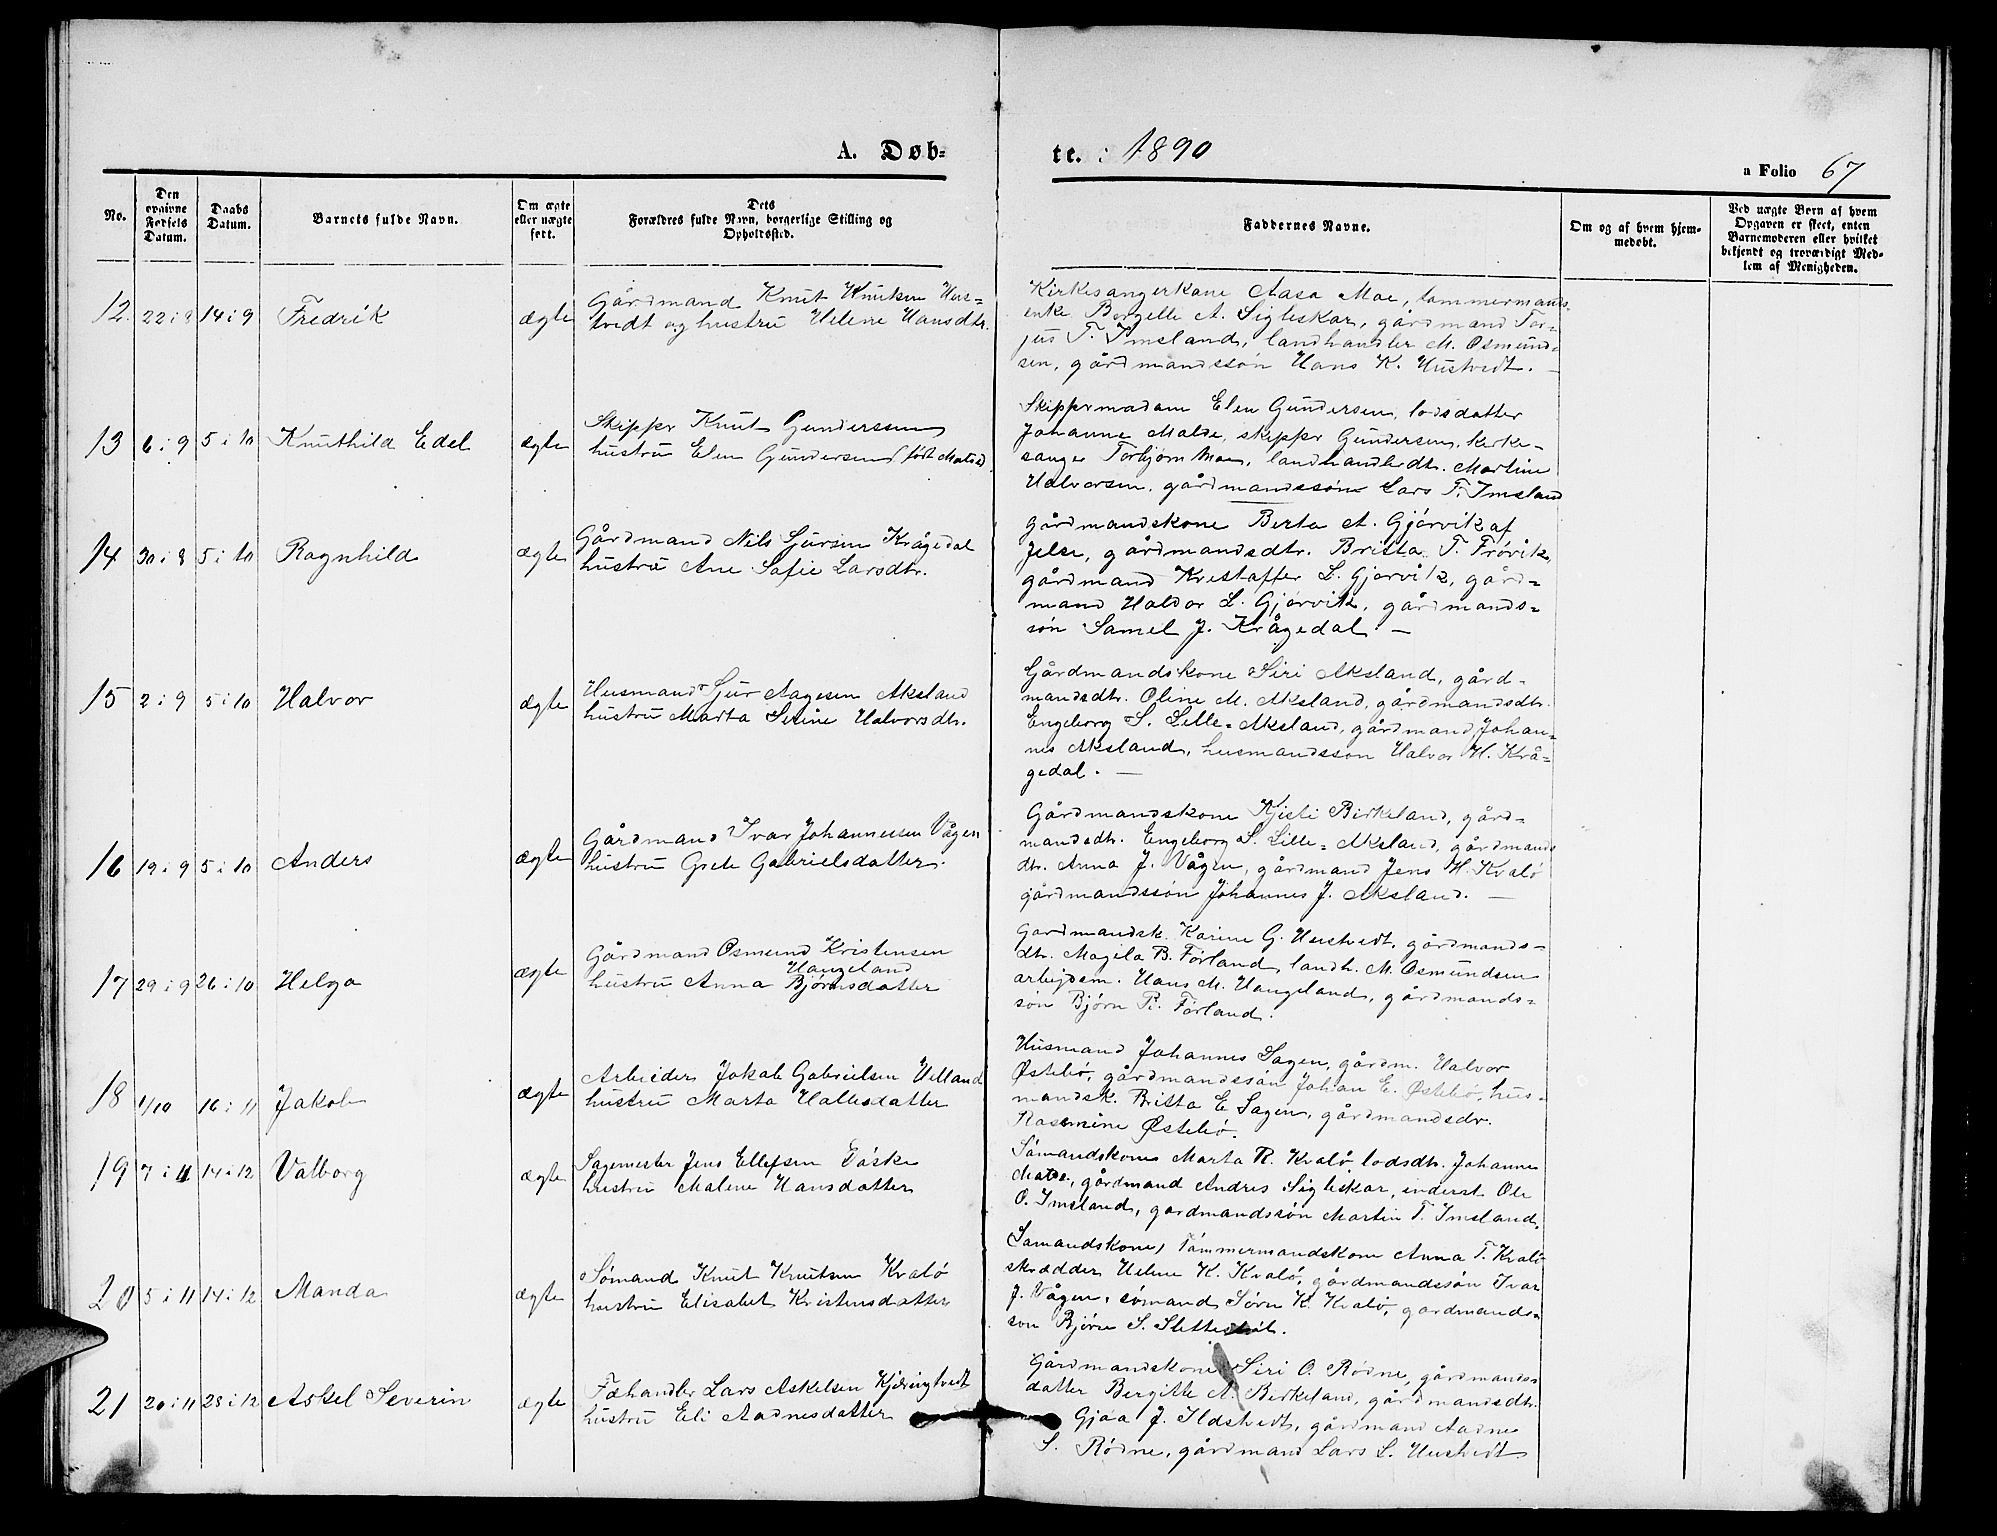 A. Døb-
te. 1890
a Folio 67
No.
Den opgivne Fødsels Datum.
Daabs Datum.
Barnets fulde Navn.
Om ægte eller uægte født.
Dets Forældres fulde Navn, borgerlige Stilling og Opholdssted.
Faddernes Navne.
Om og af hvem hjemmedøbt.
Ved uægte Børn af hvem Opgaven er skeet, enten Barnemoderen eller hvilket bekjendt og troværdigt Medlem af Menigheden.
12. 22 i 8 14 i 9 Fredrik ægte
Gårdmand Knut Knutsen Hus-
tvedt og hustru Helene Hansdtr.
Kirkesangerkone Aasa Moe, tømmermands-
enke Borgelle A. Sigleskar, gårdmand Tor-
jus T. Imsland, landhandler M. Osmund-
sen, gårdmandssøn Hans K. Hustvedt. -
13 6 i 9 5 i 10 Knuthild Edel ægte
Skipper Knut Gundersen
hustru Elen Gundersen født Malde
Skippermadam Elen Gundersen, lodsdatter
Johanne Malde, skipper Gundersen, kirke-
sanger Torbjørn Moe, landhandlerdtr. Martine
Halvorsen, gårdmandssøn Lars T. Imsland
14 30 i 8 5 i 10 Ragnhild ægte
Gårdmand Nils Sjursen Krågedal
hustru Ane Sofie Larsdtr.
Gårdmandskone Berta A. Gjørvik af
Jelse, gårdmandsdtr. Britta T. Frøvik,
gårdmand Kristaffer L. Gjørvik, gård-
mand Haldor L. Gjørvik, gårdmands-
søn Samel J. Krågedal -
15 2 i 9 5 i 10 Halvor ægte
Husmand Sjur Aagesen Aksland
hustru Marta Serine Halvorsdtr.
Gårdmandskone Siri Aksland, gård-
mandsdtr. Oline M. Aksland, gårdmandsdtr.
Engeborg S. Lille-Aksland, gårdmand Johan-
nes Aksland, husmandssøn Halvor H. Krå-
gedal. -
16 19 i 9 5 i 10 Anders ægte
Gårdmand Ivar Johannesen Vågen
hustru Grete Gabrielsdatter.
Gårdmandskone Kjisti Birkeland, gård-
mandsdtr. Engeborg S. Lille-Aksland, gårdmands
dtr. Anna J. Vågen, gårdmand Jens H. Kvalø
gårdmandssøn Johannes J. Aksland. -
17 29 i 9 26 i 10 Helga ægte
Gårdmand Osmund Kristensen
Haugeland
hustru Anna Bjørnsdatter
Gårdmandsk. Karine G. Hustvedt, gårdmands-
dtr. Magila B. Førland, landh. M. Osmundsen
arbejdsm. Hans M. Haugeland, gårdmands-
søn Bjørn B. Førland.
18 1/10 16 i 11 Jakob ægte
Arbeider Jakob Gabrielsen Helland
hustru Marta Hallesdatter
Husmand Johannes Sagen, gårdm. Halvor
Østebø, gårdmandssøn Johan E. Østebø, hus-
mandsk. Britta E Sagen, gårdmandsdr.
Rasmine Østebø.
19 7 i 11 14 i 12 Valborg ægte
Sagemester Jens Ellefsen Våske
hustru Malene Hansdatter
Sømandskone Marta R. Kvalø, lodsdtr. Johanne
Malde, gårdmand Andres Sigleskar, inderst Ole
O. Imsland, gårdmandssøn Martin T. Imsland.
20 5 i 11 14 i 12 Manda ægte
Sømand Knut Knutsen Kvalø
hustru Elisabet Kristensdatter
Sømandskone, Tømmermandskone Anna T. Kvalø
skrædder Helene K. Kvalø, gårdmandssøn Ivar
J. Vågen, sømand Søren K. Kvalø, gårdmands-
søn Bjørn S.
21 20 i 11 28 i 12 Askel Severin ægte
Fæhandler Lars Askelsen Kjøringtvedt
hustru Eli Aadnesdatter
Gårdmandskone Siri O. Rødne, gårdmands-
datter Bergitte A. Birkeland, gårdmandsdtr.
Gjøa J. Ildstvedt, gårdmand Aadne
S. Rødne, gårdmand Lars L. Hustvedt